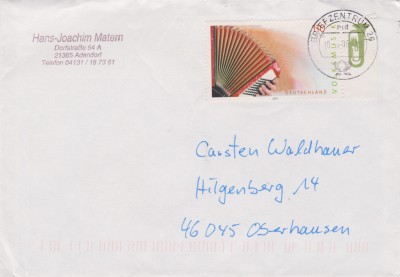 Hans-Joachim Matem
Dorfstraße 54 A
21365 Adendorf
Telefon 04131 / 18 73 61
BRIEFZENTRUM 21
DEUTSCHLAND
VOLKSMUSIK
Carsten Waldhauer
Hilgenberg 14
46045 Oberhausen